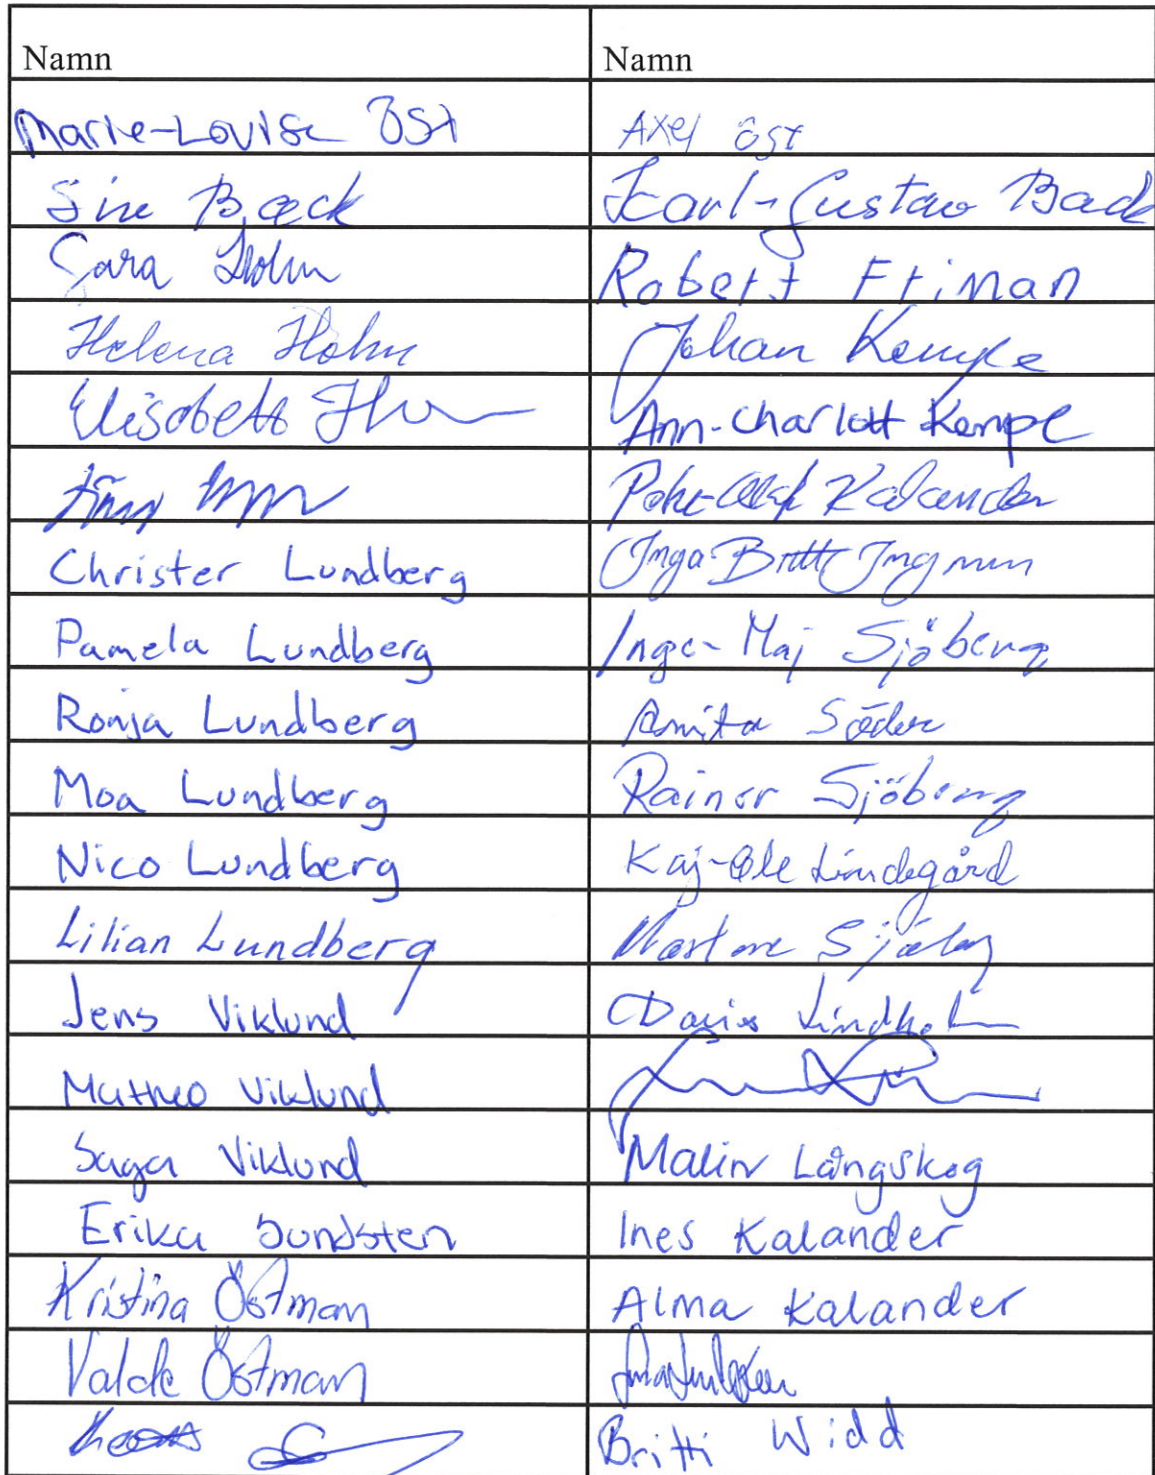 Namn Namn
Marie-Louise Öst Axel Öst
Sive Bäck Karl-Gustav Back
Sara Holm Robert Friman
Helena Holm Johan Kempe
Elisabett Ann-Charlott Kempe
Kalander
Christer Lundberg Inga Britt Ingman
Pamela Lundberg Inge-Maj Sjöberg
Ronja Lundberg Anita Söder
Moa Lundberg Rainer Sjöberg
Nico Lundberg Kaj-Ole Lindegård
Lilian Lundberg
Jens Viklund Lindholm
Matheo Viklund
Saga Viklund Malin Långskog
Erika Sundsten Ines Kalander
Kristina Östman Alma Kalander
Valde Östman
Britti Widd